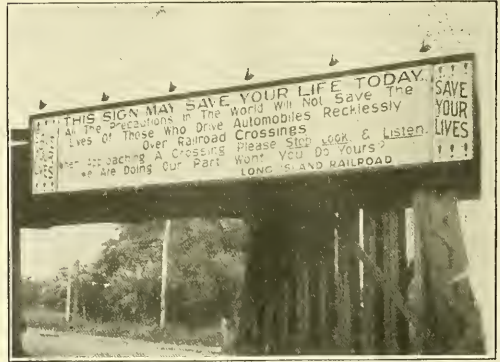 THIS SIGN MAY SAVE YOUR LIFE TODAY.
All The Precautions In The World Will Not Save The
Lives Of Those Who Drive Automobiles Recklessly
Over Railroad Crossings
When Approaching A Crossing Please Stop Look & Listen.
We Are Doing Our Part Wont You Do Yours?
LONG ISLAND RAILROAD
SAVE
YOUR
LIVES